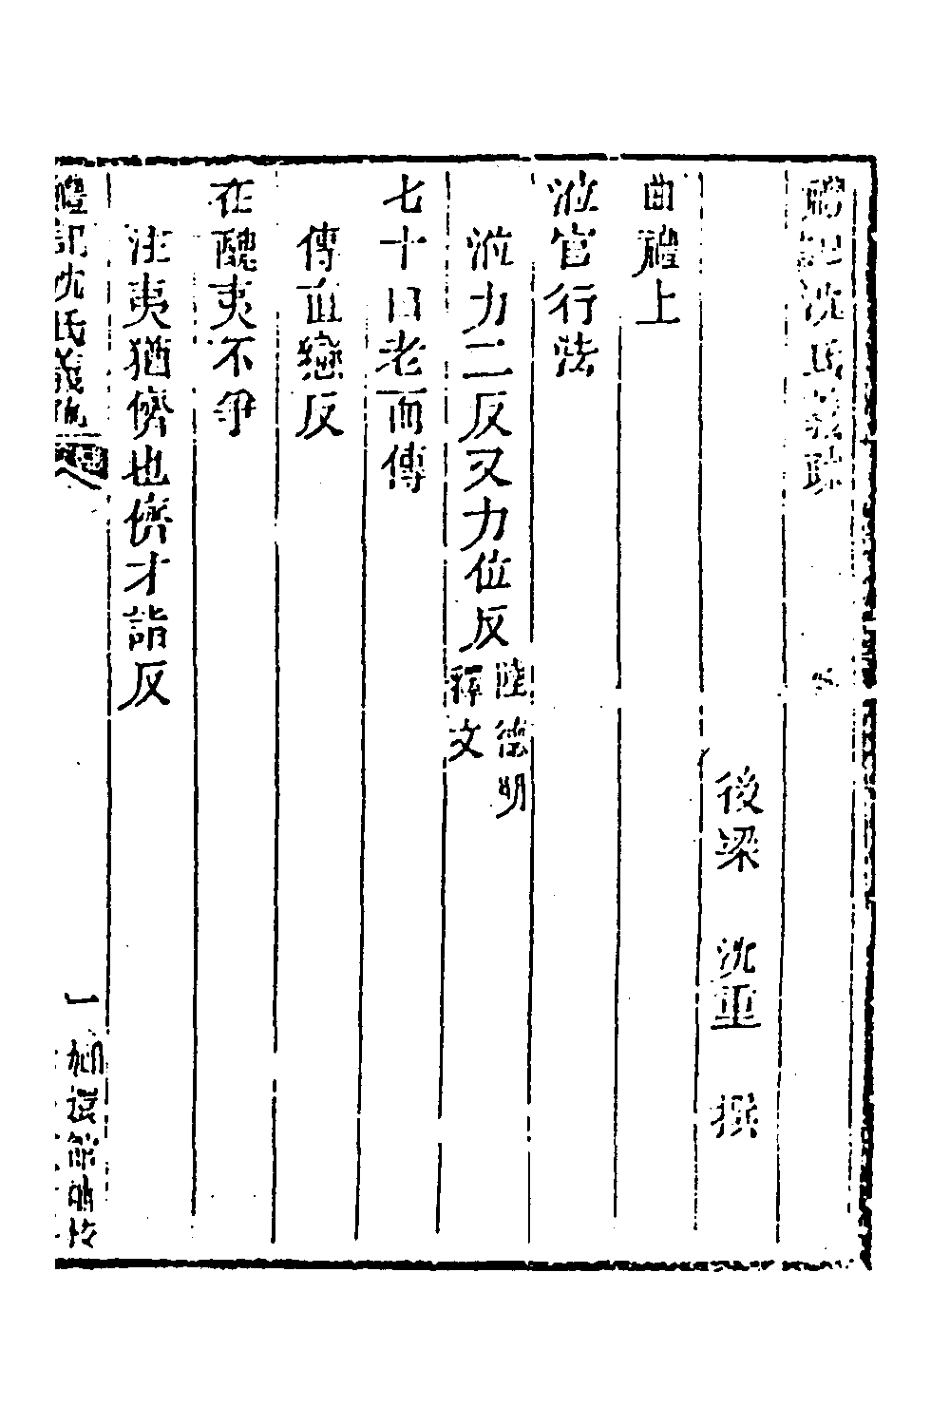 禮記沈氏義疏
後梁　沈重　撰
曲禮上
涖官行法
涖力二反又力位反陸德明釋文
七十曰老而傳
傳直戀反
在醜夷不爭
注夷猶儕也儕才詣反
禮記沈氏義疏
一　嫏嬛館補校